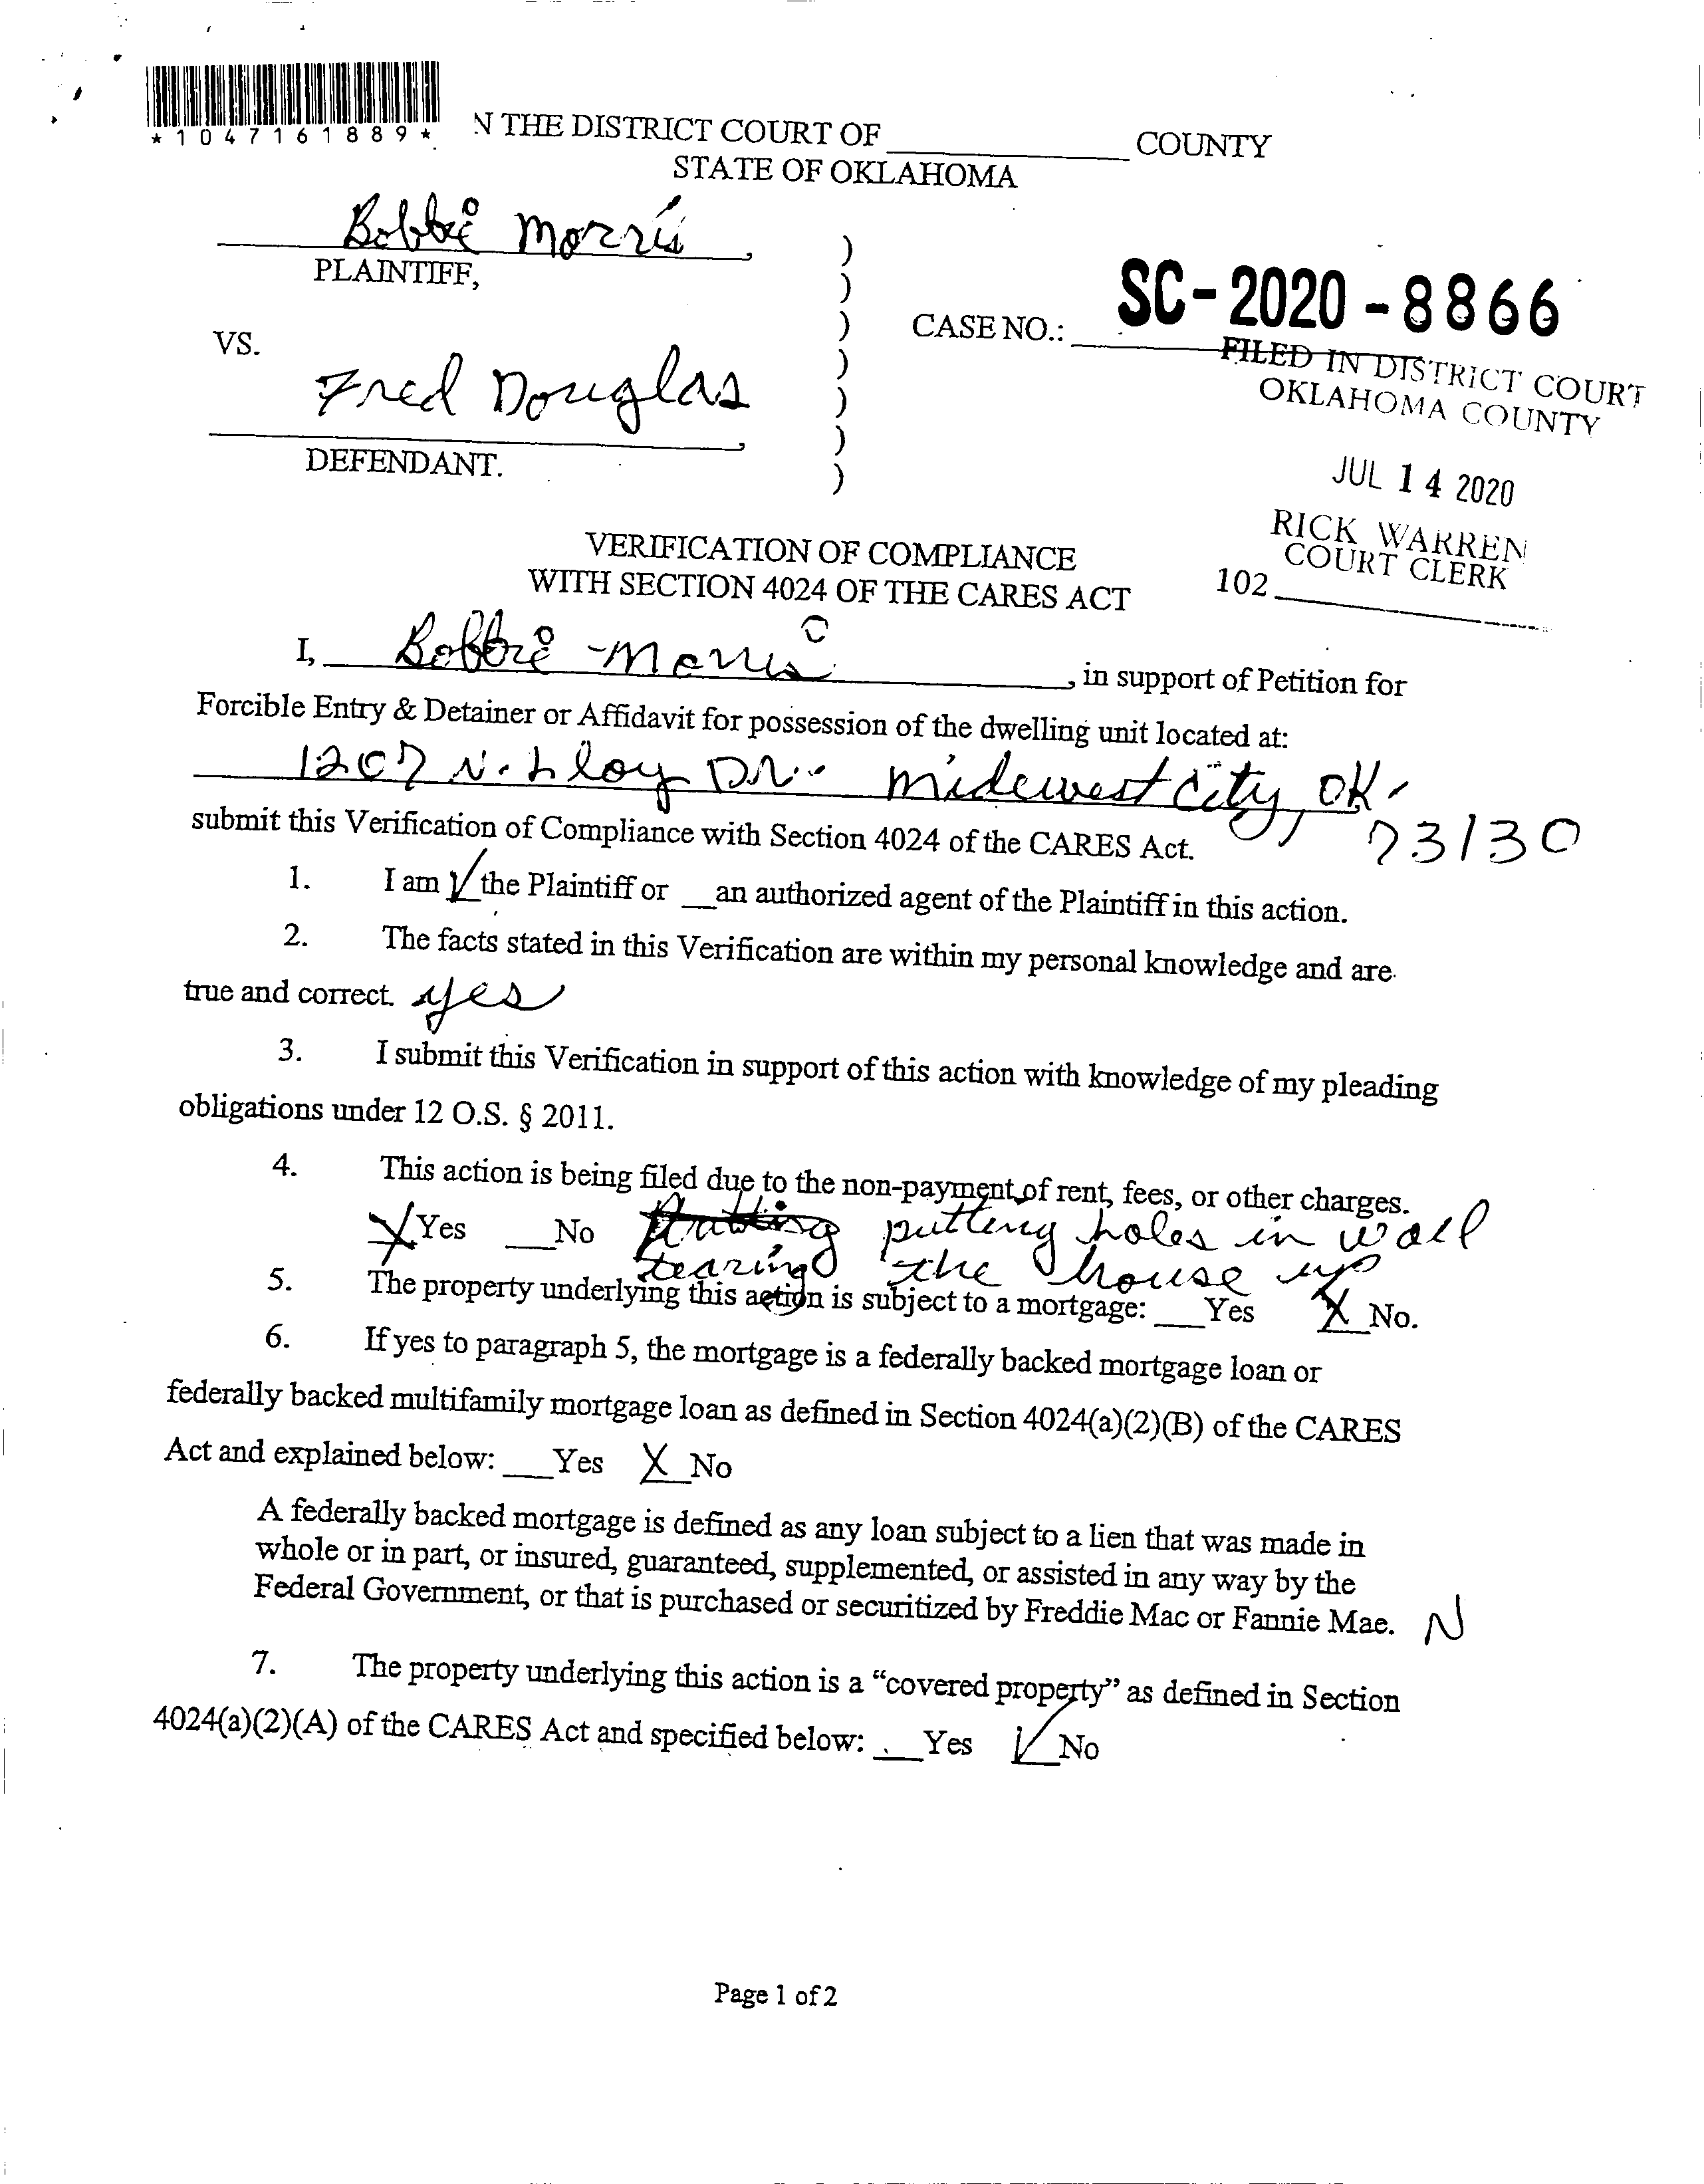 *1047161889*
N THE DISTRICT COURT OF ____________ COUNTY
STATE OF OKLAHOMA
Bobbie Morris,
PLAINTIFF,
VS.
Fred Douglas,
DEFENDANT.
)
)
)
)
)
)
)
CASE NO.: SC-2020-8866
FILED IN DISTRICT COURT
OKLAHOMA COUNTY
JUL 14 2020
RICK WARREN
COURT CLERK
102
VERIFICATION OF COMPLIANCE
WITH SECTION 4024 OF THE CARES ACT
I, Bobbie Morris, in support of Petition for
Forcible Entry & Detainer or Affidavit for possession of the dwelling unit located at:
1207 N. Lloy Dr. Midewest City, OK.
73130
submit this Verification of Compliance with Section 4024 of the CARES Act.
1. I am ✓ the Plaintiff or __an authorized agent of the Plaintiff in this action.
2. The facts stated in this Verification are within my personal knowledge and are
true and correct. yes
3. I submit this Verification in support of this action with knowledge of my pleading
obligations under 12 O.S. § 2011.
4. This action is being filed due to the non-payment of rent, fees, or other charges.
X Yes ___No putting holes in wall
tearing the house up
5. The property underlying this action is subject to a mortgage: ___Yes X No.
6. If yes to paragraph 5, the mortgage is a federally backed mortgage loan or
federally backed multifamily mortgage loan as defined in Section 4024(a)(2)(B) of the CARES
Act and explained below: ___Yes X No
A federally backed mortgage is defined as any loan subject to a lien that was made in
whole or in part, or insured, guaranteed, supplemented, or assisted in any way by the
Federal Government, or that is purchased or securitized by Freddie Mac or Fannie Mae. N
7. The property underlying this action is a “covered property” as defined in Section
4024(a)(2)(A) of the CARES Act and specified below: ___Yes ✓ No
Page 1 of 2